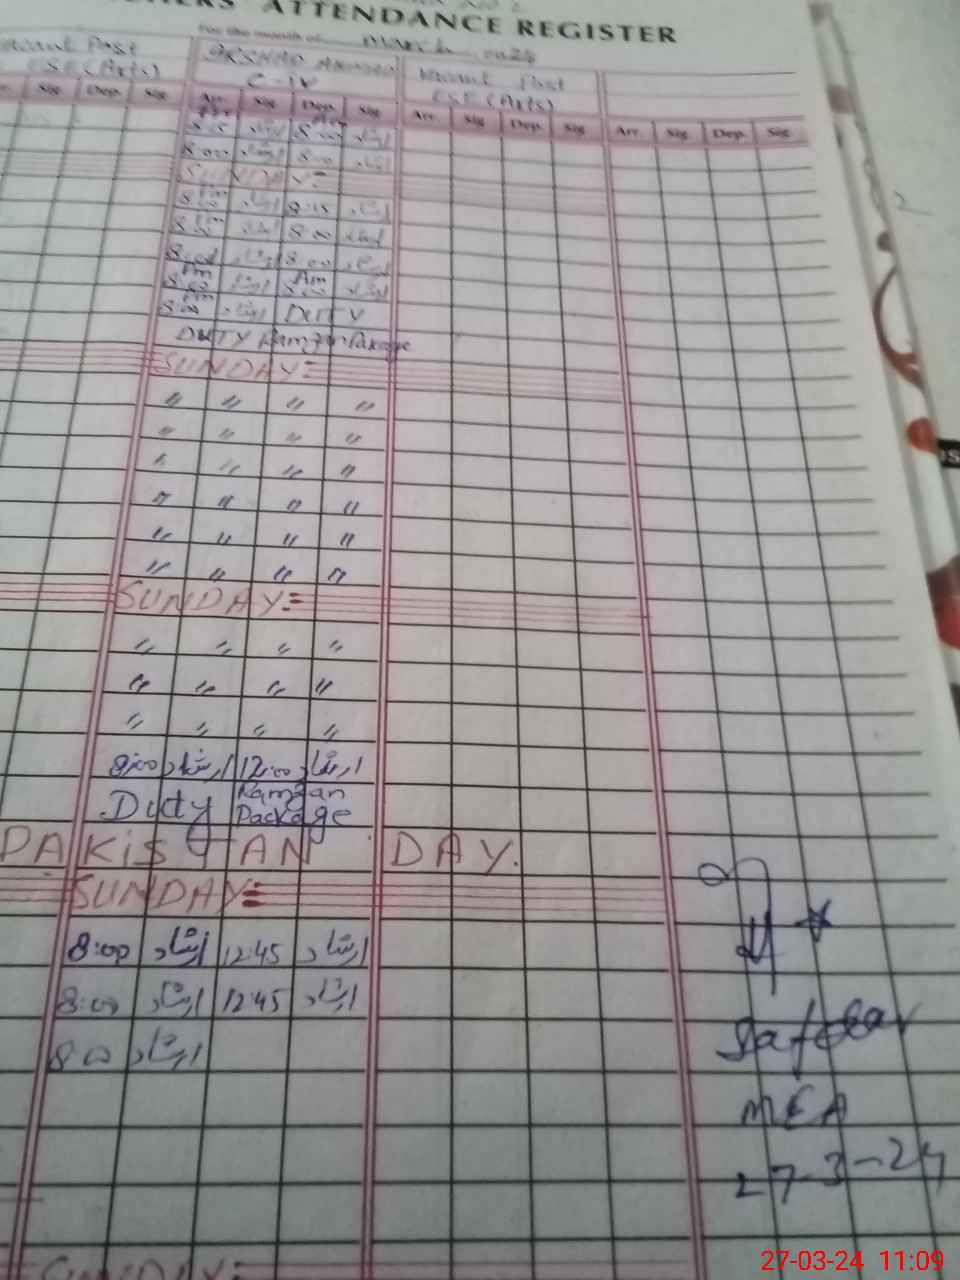 ATTENDANCE REGISTER
For the month of March 2024
Vacant Post
ESE (Arts)
ARSHAD AHMAD
C-IV
Vacant Post
ESE (Arts)
Sig. Dep. Sig. Arr. Sig. Dep. Sig. Arr. Sig. Dep. Sig. Arr. Sig. Dep. Sig.
8:15 ارشاد 8:00 ارشاد
8:00 ارشاد 8:00 ارشاد
SUNDAY=
8:00 ارشاد 8:15 ارشاد
8:00 ارشاد 8:00 ارشاد
8:00 ارشاد 8:00 ارشاد
Am 8:00 ارشاد Am 8:00 ارشاد
8:00 ارشاد Duty
DUTY Ramzan Package
SUNDAY=
〃 〃 〃 〃
〃 〃 〃 〃
〃 〃 〃 〃
〃 〃 〃 〃
〃 〃 〃 〃
〃 〃 〃 〃
SUNDAY=
〃 〃 〃 〃
〃 〃 〃 〃
〃 〃 〃 〃
8:00 ارشاد 12:00 ارشاد
Duty Ramzan Package
PAKISTAN DAY.
SUNDAY=
8:00 ارشاد 12:45 ارشاد
8:00 ارشاد 12:45 ارشاد
8:00 ارشاد
Safdar
MEA
27-3-24
SUNDAY=
27-03-24 11:09